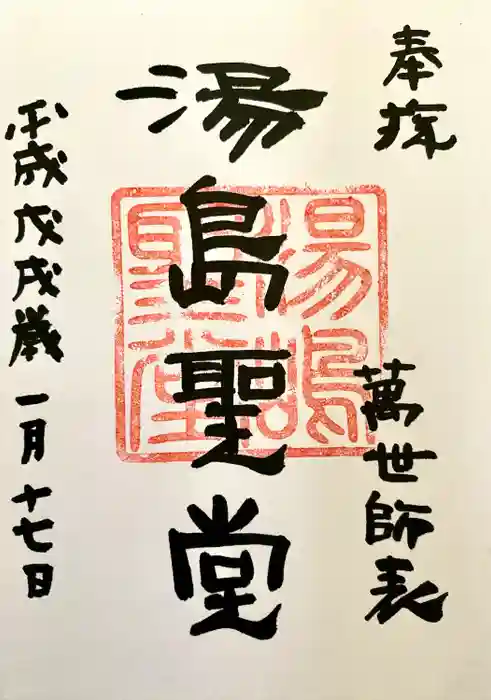 奉拝
萬世師表
湯島聖堂
湯嶋
聖堂
平成戊戌歳一月十七日